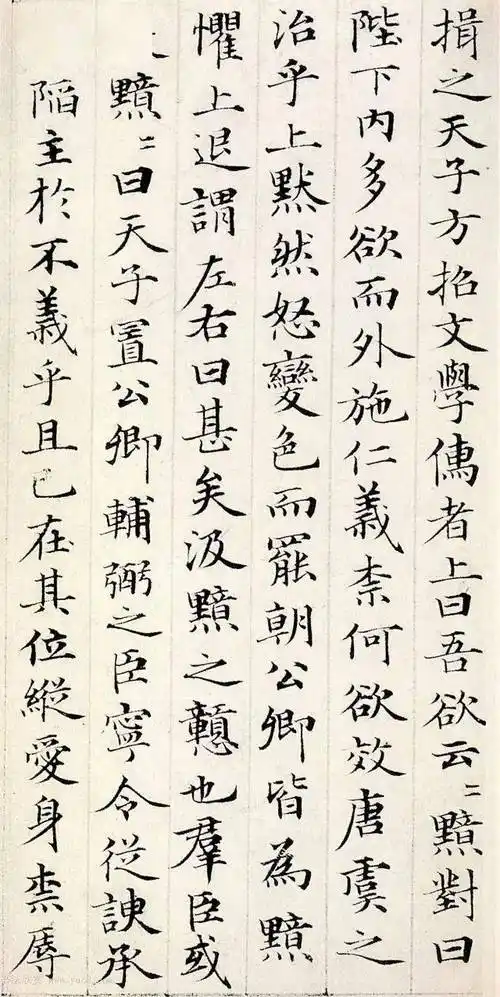 揖之天子方招文學儁者上曰吾欲云〻黯對曰
陛下内多欲而外施仁義柰何欲效唐虞之
治乎上默然怒變色而罷朝公卿皆為黯
懼上退謂左右曰甚矣汲黯之戇也羣臣或
黯〻曰天子置公卿輔弼之臣寧令從諛承
陷主於不義乎且已在其位縱愛身柰辱